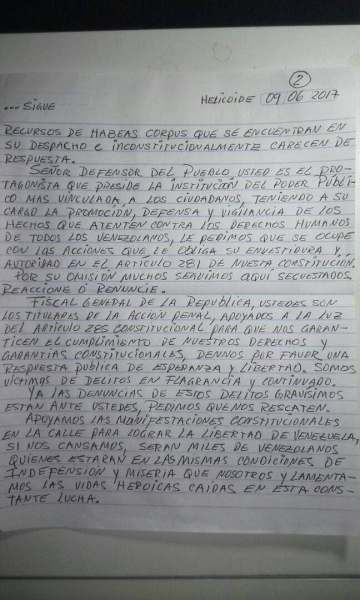 2
...SIGUE
HELICOIDE 09.06 2017
RECURSOS DE HABEAS CORPUS QUE SE ENCUENTRAN EN
SU DESPACHO E INCONSTITUCIONALMENTE CARECEN DE
RESPUESTA.
SEÑOR DEFENSOR DEL PUEBLO, USTED ES EL PRO-
TAGONISTA QUE PRESIDE LA INSTITUCION DEL PODER PÚBLI-
CO MAS VINCULADA A LOS CIUDADANOS, TENIENDO A SU
CARGO LA PROMOCIÓN, DEFENSA Y VIGILANCIA DE LOS
HECHOS QUE ATENTEN CONTRA LOS DERECHOS HUMANOS
DE TODOS LOS VENEZOLANOS, LE PEDIMOS QUE SE OCUPE
CON LAS ACCIONES QUE LE OBLIGA SU ENVESTIDURA Y
AUTORIDAD EN EL ARTICULO 281 DE NUESTRA CONSTITUCIÓN.
POR SU OMISIÓN MUCHOS SEGUIMOS AQUÍ SECUESTRADOS.
REACCIONE O RENUNCIE.
FISCAL GENERAL DE LA REPUBLICA, USTEDES SON
LOS TITULARES DE LA ACCIÓN PENAL, APOYADOS A LA LUZ
DEL ARTICULO 285 CONSTITUCIONAL PARA QUE NOS GARAN-
TICEN EL CUMPLIMIENTO DE NUESTROS DERECHOS Y
GARANTIAS CONSTITUCIONALES, DENNOS POR FAVOR UNA
RESPUESTA PUBLICA DE ESPERANZA Y LIBERTAD. SOMOS
VÍCTIMAS DE DELITOS EN FLAGRANCIA Y CONTINUADO.
YA LAS DENUNCIAS DE ESTOS DELITOS GRAVÍSIMOS
ESTAN ANTE USTEDES, PEDIMOS QUE NOS RESCATEN.
APOYAMOS LAS MANIFESTACIONES CONSTITUCIONALES
EN LA CALLE PARA LOGRAR LA LIBERTAD DE VENEZUELA,
SI NOS CANSAMOS, SERAN MILES DE VENEZOLANOS
QUIENES ESTARAN EN LAS MISMAS CONDICIONES DE
INDEFENSIÓN Y MISERIA QUE NOSOTROS Y LAMENTA-
MOS LAS VIDAS HEROICAS CAIDAS EN ESTA CONS-
TANTE LUCHA.